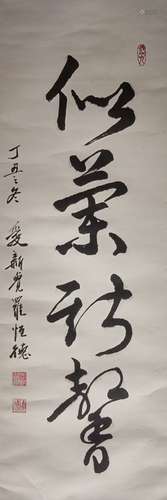 似蘭斯馨
丁丑冬 愛新覺羅恒德